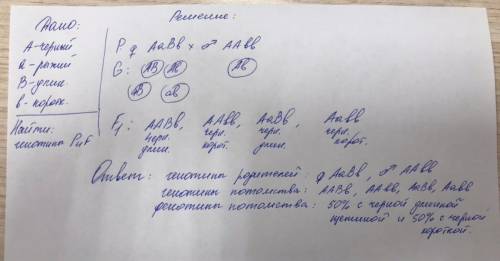 Дано:
А-черный
а-рыжий
В-длин.
в-корот.
Найти:
генотипы P и F
Решение:
P ♀ АаВв × ♂ ААвв
G: АВ Ав Ав
аВ ав
F₁: ААВв, ААвв, АаВв, Аавв
черн. черн. черн. черн.
длин. корот. длин. корот.
Ответ: генотипы родителей: ♀ АаВв, ♂ ААвв
генотипы потомства: ААВв, ААвв, АаВв, Аавв
фенотипы потомства: 50% с черной длинной
щетиной и 50% с черной
короткой.